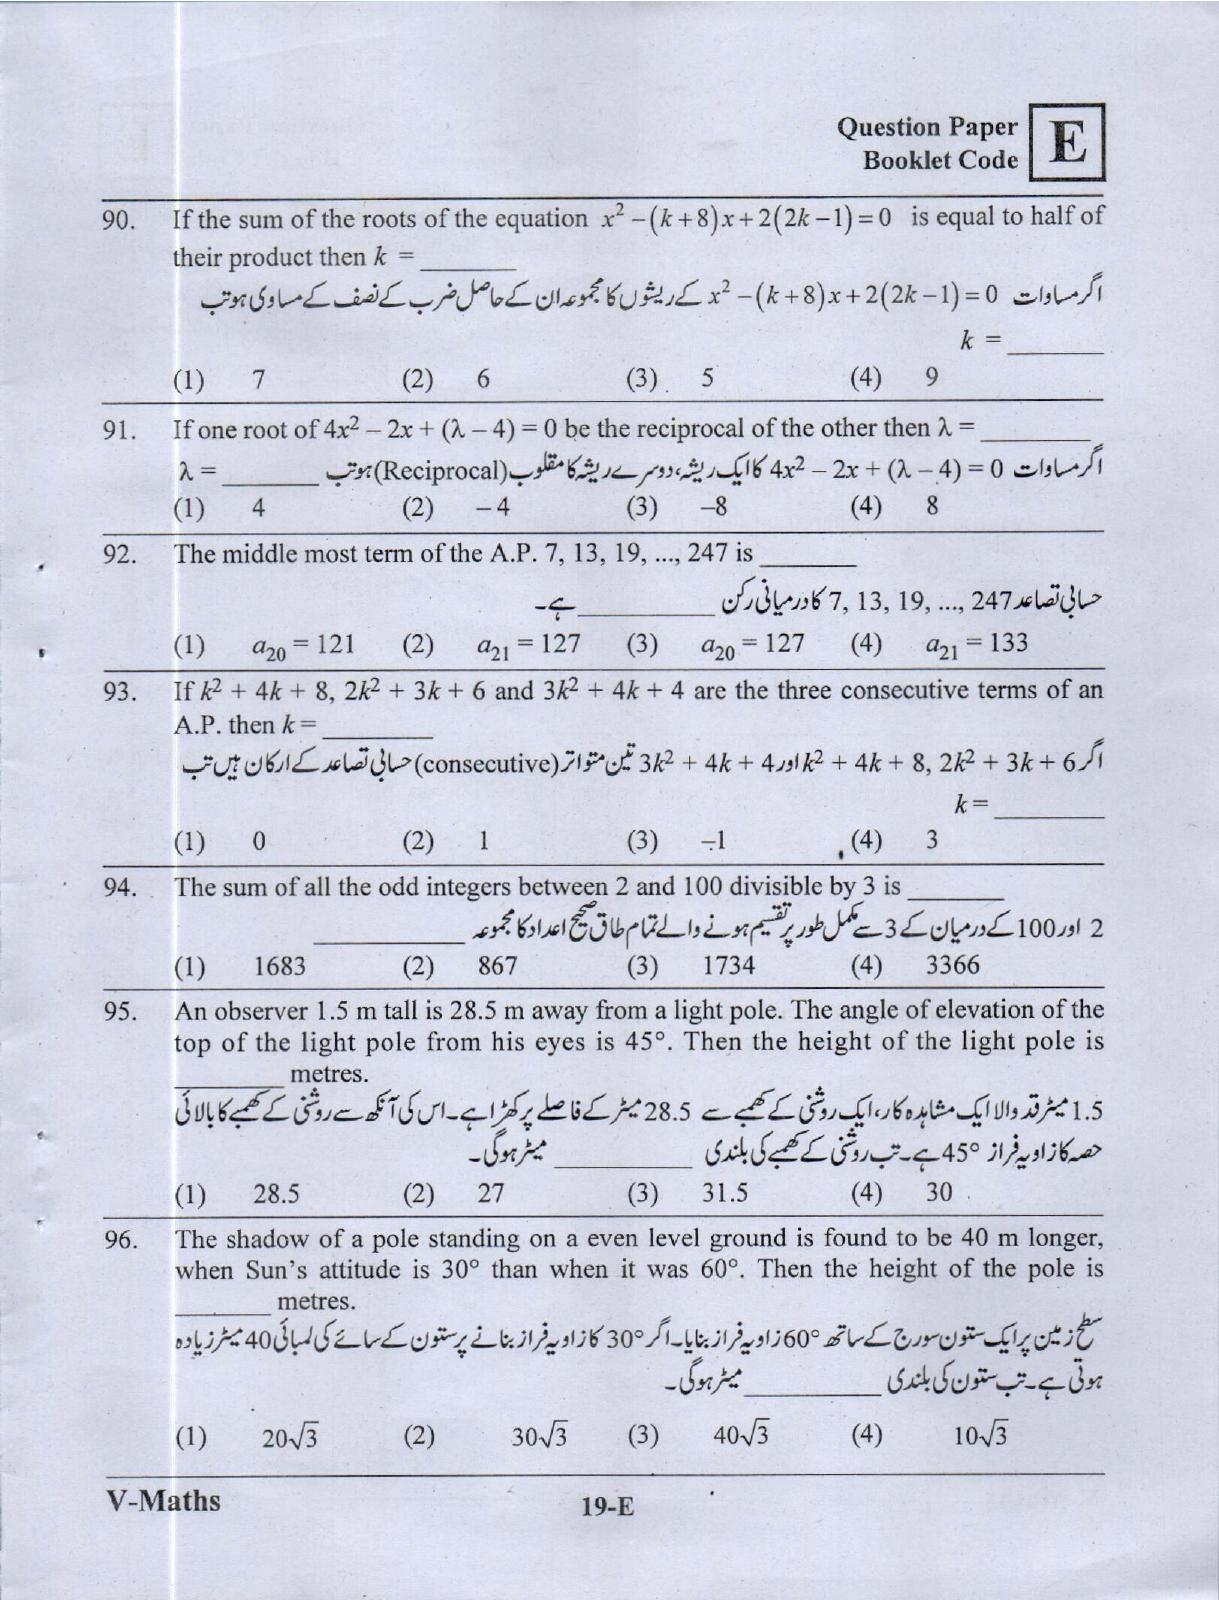 Question Paper
Booklet Code
E
90. If the sum of the roots of the equation x² – (k+8)x + 2(2k–1) = 0 is equal to half of
their product then k = ________
اگر مساوات x² – (k+8)x + 2(2k–1) = 0 کے ریشوں کا مجموعہ ان کے حاصل ضرب کے نصف کے مساوی ہو تب
k = ________
(1) 7 (2) 6 (3) 5 (4) 9
91. If one root of 4x² – 2x + (λ – 4) = 0 be the reciprocal of the other then λ = ________
اگر مساوات 4x² – 2x + (λ – 4) = 0 کا ایک ریشہ، دوسرے ریشہ کا مقلوب (Reciprocal) ہو تب ________ λ =
(1) 4 (2) – 4 (3) –8 (4) 8
92. The middle most term of the A.P. 7, 13, 19, ..., 247 is ________
حسابی تصاعد 7, 13, 19, ..., 247 کا درمیانی رکن ________ ہے۔
(1) a₂₀ = 121 (2) a₂₁ = 127 (3) a₂₀ = 127 (4) a₂₁ = 133
93. If k² + 4k + 8, 2k² + 3k + 6 and 3k² + 4k + 4 are the three consecutive terms of an
A.P. then k = ________
اگر k² + 4k + 8, 2k² + 3k + 6 اور 3k² + 4k + 4 تین متواتر (consecutive) حسابی تصاعد کے ارکان ہیں تب
k = ________
(1) 0 (2) 1 (3) –1 (4) 3
94. The sum of all the odd integers between 2 and 100 divisible by 3 is ________
2 اور 100 کے درمیان کے 3 سے مکمل طور پر تقسیم ہونے والے تمام طاق صحیح اعداد کا مجموعہ ________
(1) 1683 (2) 867 (3) 1734 (4) 3366
95. An observer 1.5 m tall is 28.5 m away from a light pole. The angle of elevation of the
top of the light pole from his eyes is 45°. Then the height of the light pole is
________ metres.
1.5 میٹر قد والا ایک مشاہدہ کار، ایک روشنی کے کھمبے سے 28.5 میٹر کے فاصلے پر کھڑا ہے۔ اس کی آنکھ سے روشنی کے کھمبے کا بالائی
حصہ کا زاویہ فراز 45° ہے۔ تب روشنی کے کھمبے کی بلندی ________ میٹر ہوگی۔
(1) 28.5 (2) 27 (3) 31.5 (4) 30
96. The shadow of a pole standing on a even level ground is found to be 40 m longer,
when Sun's attitude is 30° than when it was 60°. Then the height of the pole is
________ metres.
سطح زمین پر ایک ستون سورج کے ساتھ 60° زاویہ فراز بنایا۔ اگر 30° کا زاویہ فراز بنانے پر ستون کے سائے کی لمبائی 40 میٹر زیادہ
ہوتی ہے۔ تب ستون کی بلندی ________ میٹر ہوگی۔
(1) 20√3 (2) 30√3 (3) 40√3 (4) 10√3
V-Maths
19-E